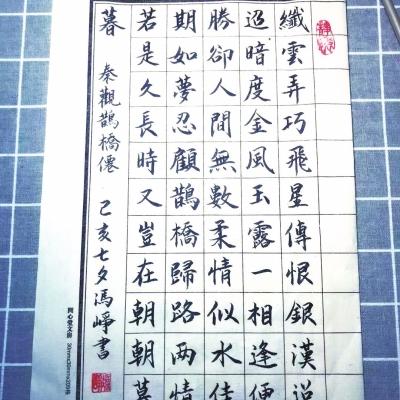 纖雲弄巧飛星傳恨銀漢迢
迢暗度金風玉露一相逢便
勝卻人間無數柔情似水佳
期如夢忍顧鵲橋歸路两情
若是久長時又豈在朝朝暮
暮
秦觀鵲橋僊 己亥七夕馮崢書